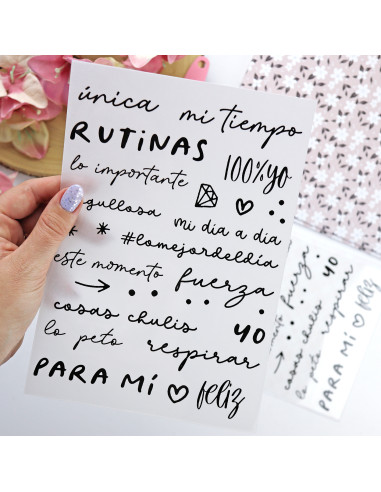 única mi tiempo
RUTiNAS
lo importante 100%yo
gullosa mi dia a dia
#lomejordeldía
este momento fuerza
cosas chulis yo
lo peto respirar
PARA MÍ feliz
fuerza
yo
cosas chulis
lo peto respirar
PARA MÍ feliz